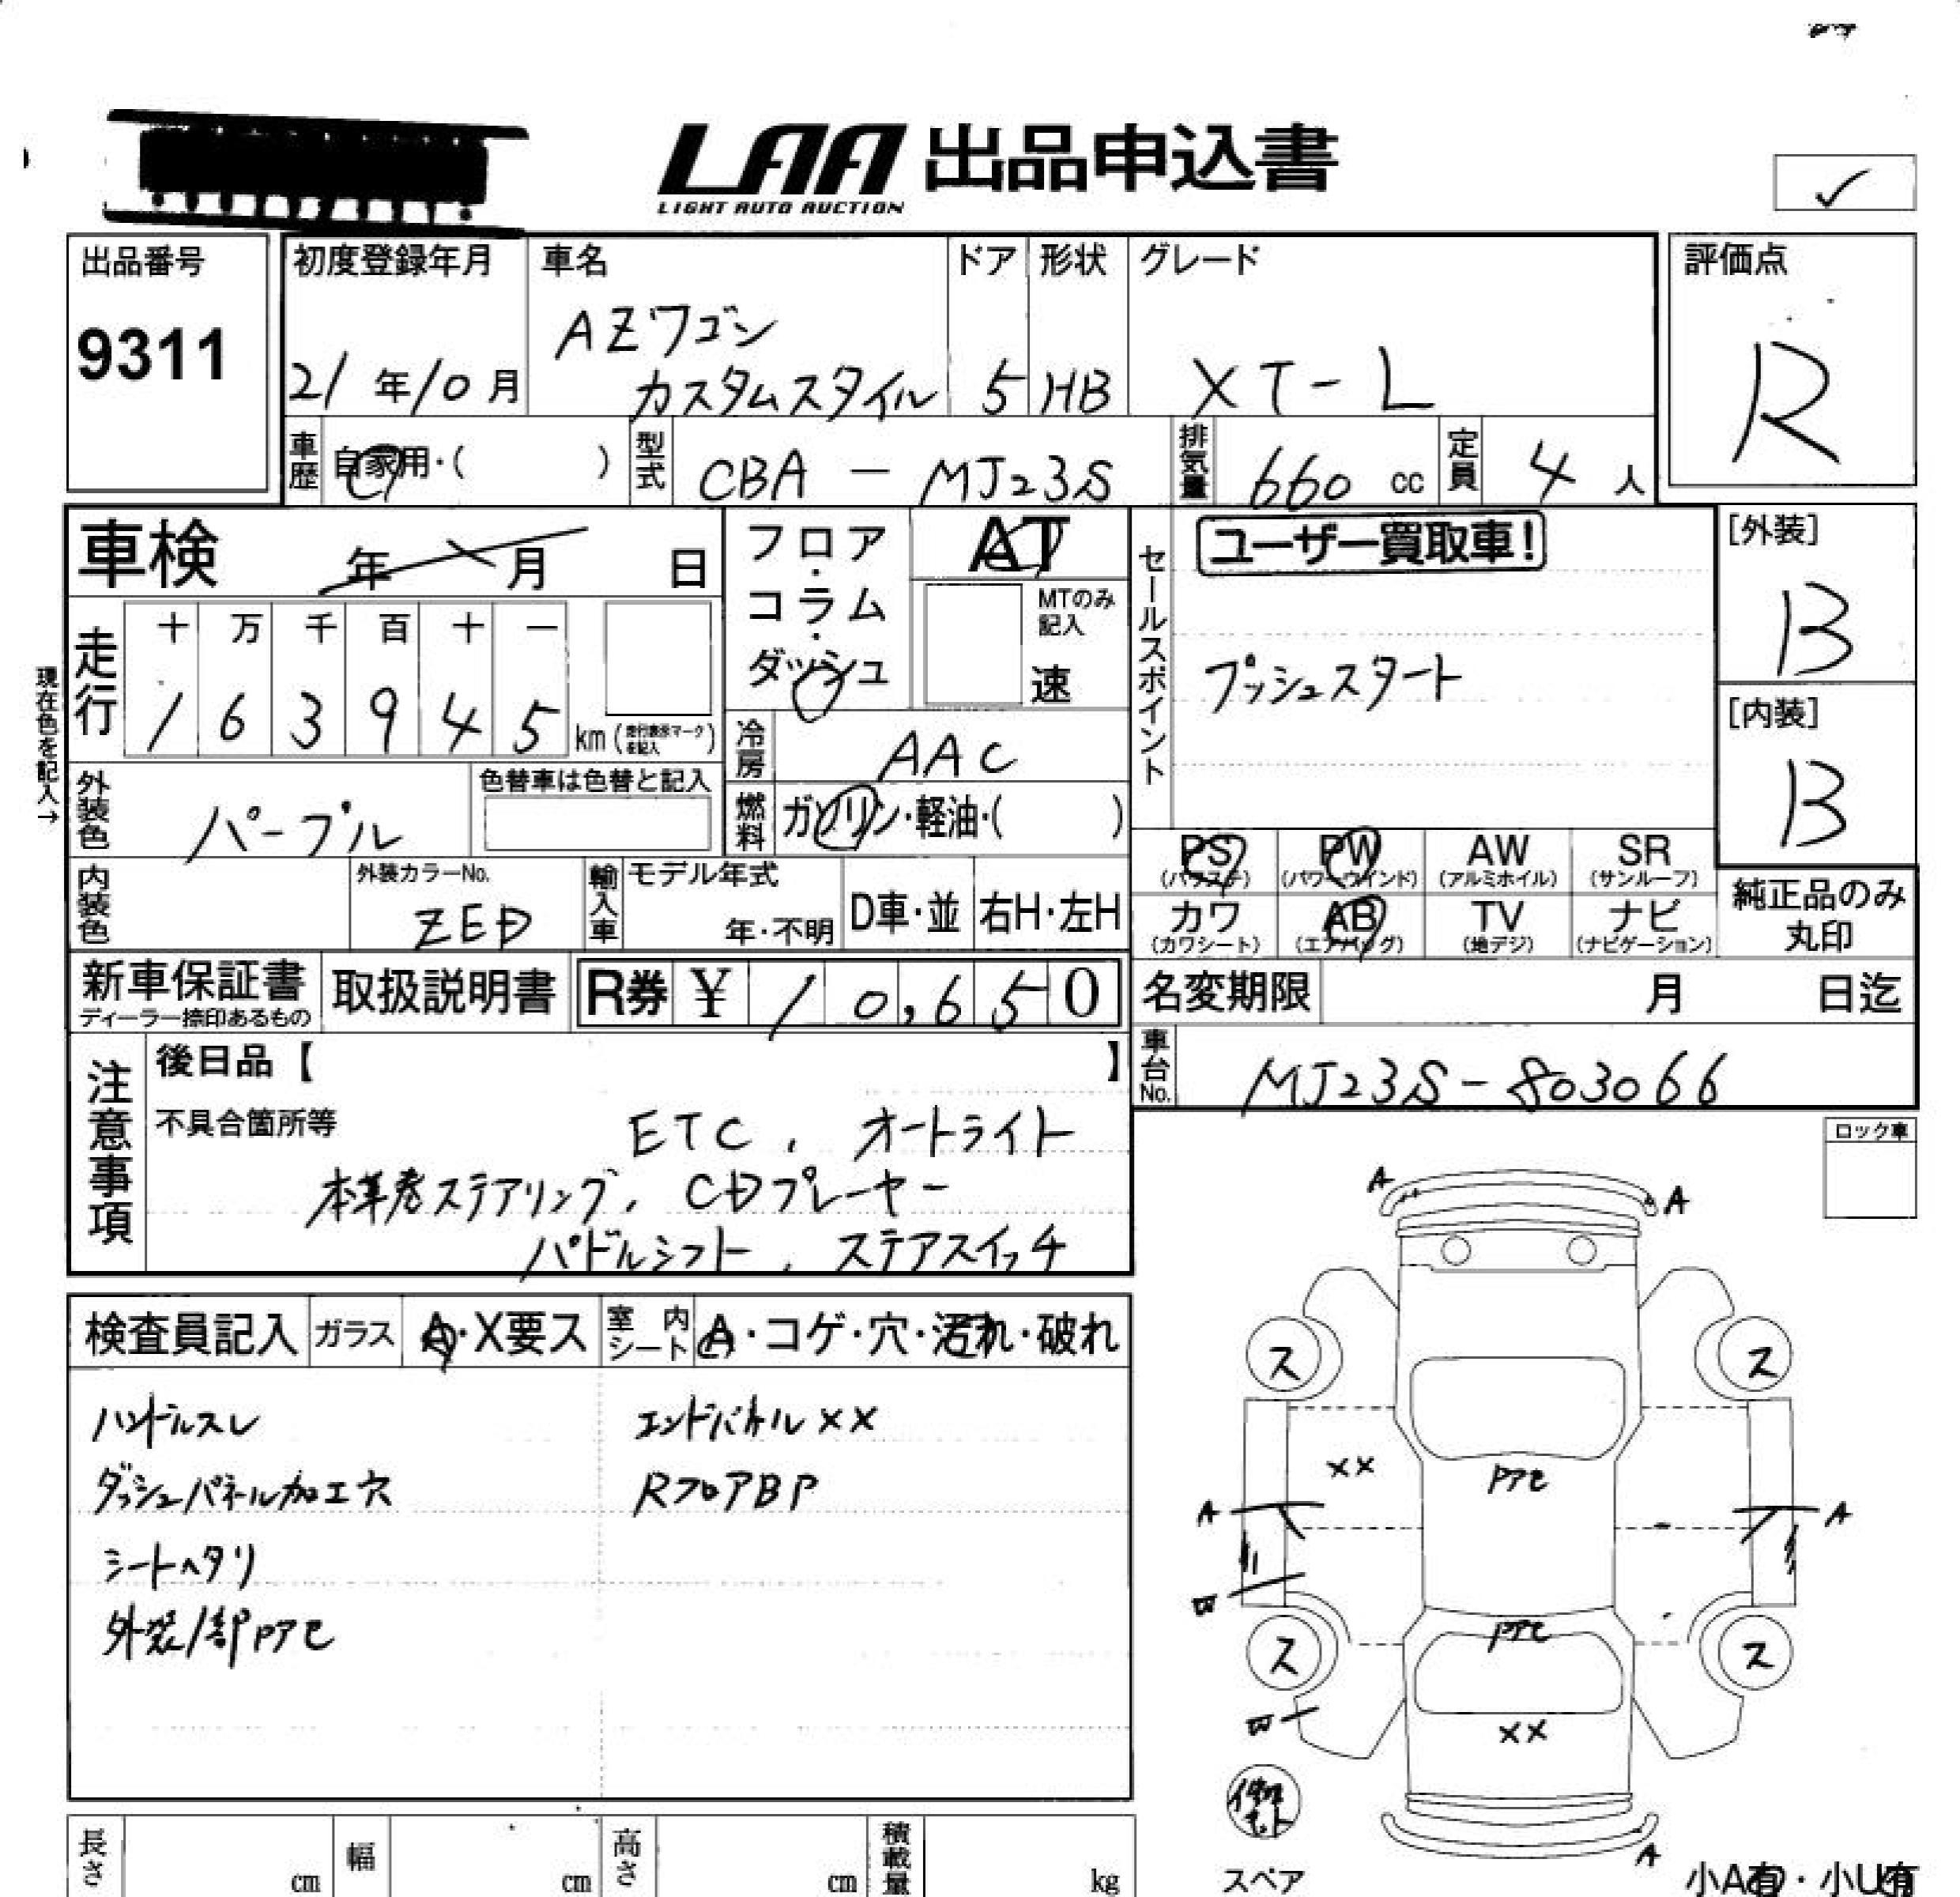 LAA 出品申込書
LIGHT AUTO AUCTION
✓
出品番号
9311
初度登録年月
21年10月
車名
AZワゴン
カスタムスタイル
ドア
5
形状
HB
グレード
XT-L
評価点
R
車歴
自家用・( )
型式
CBA - MJ23S
排気量
660 cc
定員
4 人
車検 年 月 日
現在色を記入→
走行
十 万 千 百 十 一
1 6 3 9 4 5 km (走行表示マークを記入)
外装色
パープル
色替車は色替と記入
内装色
外装カラーNo.
ZED
フロア・コラム・ダッシュ
AT
MTのみ記入
速
冷房
AAC
燃料
ガソリン・軽油・( )
輸入車
モデル年式
年・不明
D車・並
右H・左H
セールスポイント
ユーザー買取車!
プッシュスタート
[外装]
B
[内装]
B
PS (パワステ) PW (パワーウインド) AW (アルミホイル) SR (サンルーフ)
カワ (カワシート) AB (エアバッグ) TV (地デジ) ナビ (ナビゲーション)
純正品のみ
丸印
新車保証書
ディーラー捺印あるもの
取扱説明書
R券 ¥ 10,650
名変期限 月 日迄
車台No.
MJ23S-803066
注意事項
後日品【 】
不具合箇所等
ETC, オートライト
本革巻ステアリング, CDプレーヤー
パドルシフト, ステアスイッチ
ロック車
検査員記入 ガラス A・X要ス 室内シート A・コゲ・穴・汚れ・破れ
ハンドルスレ
ダッシュパネル加工穴
シートヘタリ
外装1部Pアセ
エンドパネルXX
RフロアBP
A A
ス ス
XX
Pアセ
A A
W
Pアセ
ス ス
W
XX
修理キット
スペア
A
小A有・小U有
長さ cm 幅 cm 高さ cm 積載量 kg